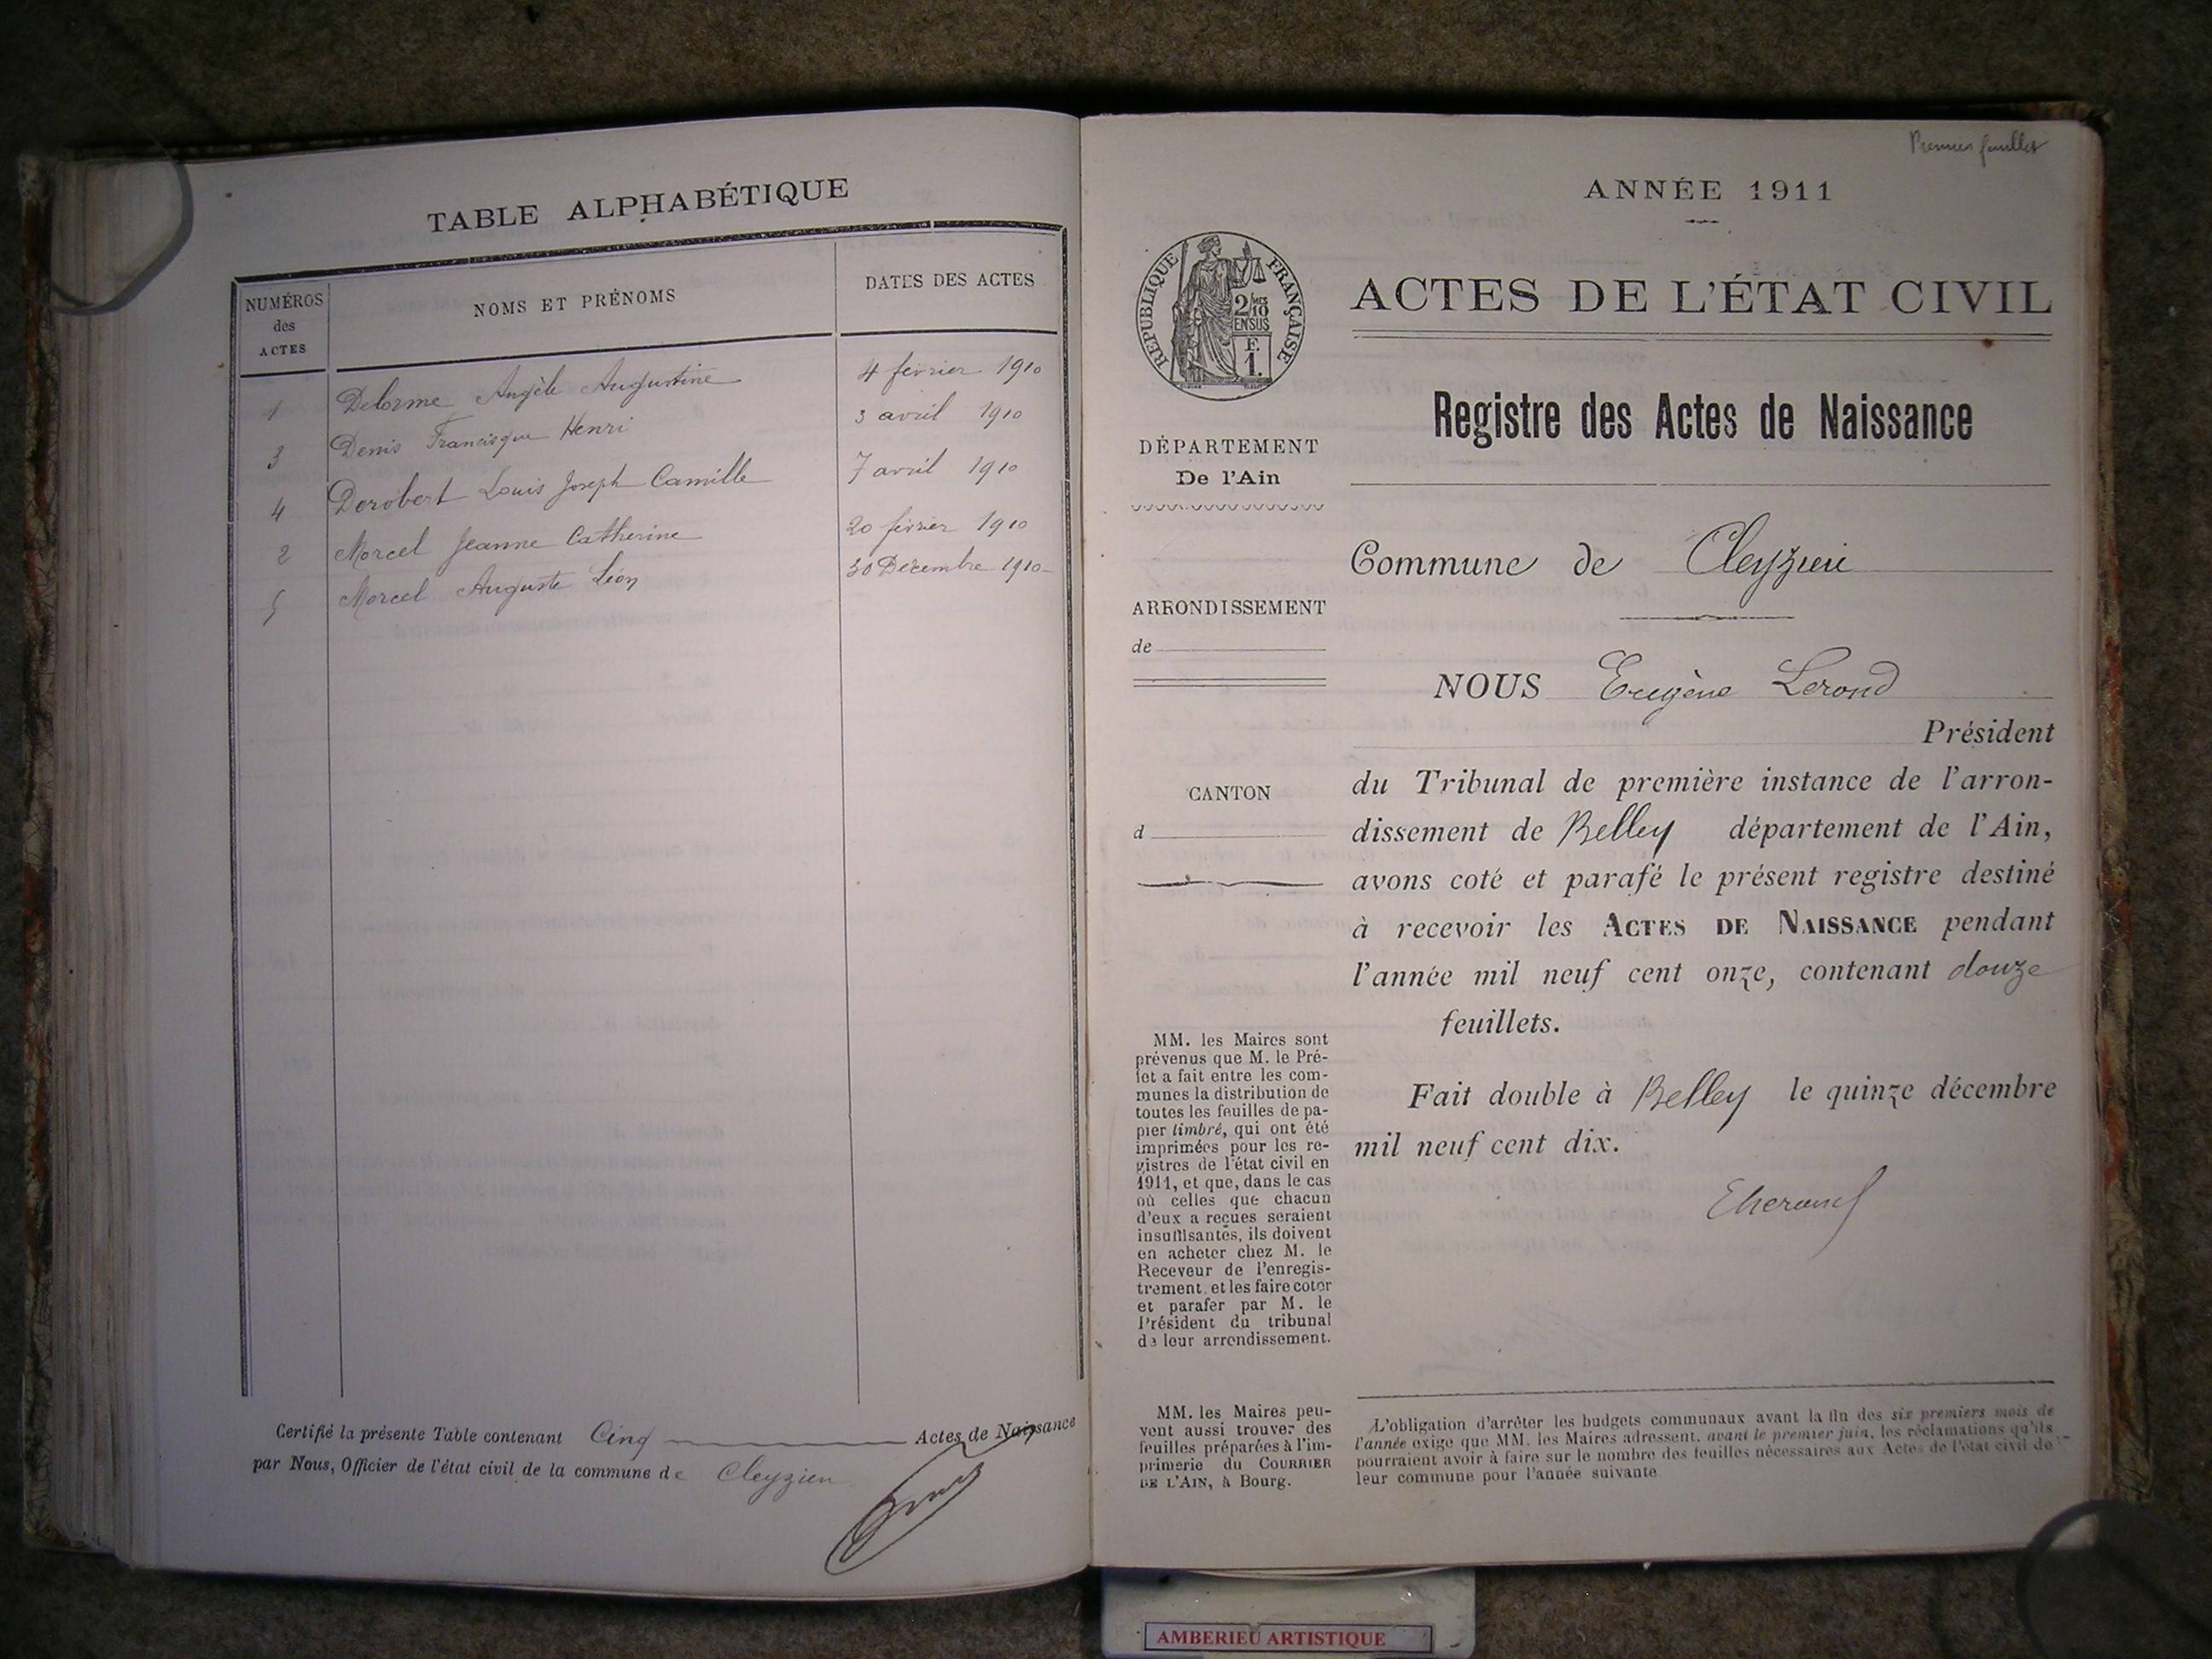 TABLE ALPHABÉTIQUE
NUMÉROS
des
ACTES
NOMS ET PRÉNOMS
DATES DES ACTES
1 Delorme Angèle Augustine 4 février 1910
3 Denis Francisque Henri 3 avril 1910
4 Derobert Louis Joseph Camille 7 avril 1910
2 Morcel Jeanne Catherine 20 février 1910
5 Morcel Auguste Léon 30 Décembre 1910
Certifié la présente Table contenant Cinq Actes de Naissance
par Nous, Officier de l'état civil de la commune de Cleyzieu
Premier feuillet
ANNÉE 1911
RÉPUBLIQUE FRANÇAISE
2/10 MES
EN SUS
F.
1.
ACTES DE L'ÉTAT CIVIL
Registre des Actes de Naissance
DÉPARTEMENT
De l'Ain
Commune de Cleyzieu
ARRONDISSEMENT
de
NOUS Eugène Lerond
Président
CANTON
d
du Tribunal de première instance de l'arron-
dissement de Belley département de l'Ain,
avons coté et parafé le présent registre destiné
à recevoir les ACTES DE NAISSANCE pendant
l'année mil neuf cent onze, contenant douze
feuillets.
Fait double à Belley le quinze décembre
mil neuf cent dix.
MM. les Maires sont
prévenus que M. le Pré-
fet a fait entre les com-
munes la distribution de
toutes les feuilles de pa-
pier timbré, qui ont été
imprimées pour les re-
gistres de l'état civil en
1911, et que, dans le cas
où celles que chacun
d'eux a reçues seraient
insuffisantes, ils doivent
en acheter chez M. le
Receveur de l'enregis-
trement, et les faire coter
et parafer par M. le
Président du tribunal
de leur arrondissement.
MM. les Maires peu-
vent aussi trouver des
feuilles préparées à l'im-
primerie du COURRIER
DE L'AIN, à Bourg.
L'obligation d'arrêter les budgets communaux avant la fin des six premiers mois de
l'année exige que MM. les Maires adressent, avant le premier juin, les réclamations qu'ils
pourraient avoir à faire sur le nombre des feuilles nécessaires aux Actes de l'état civil de
leur commune pour l'année suivante.
AMBERIEU ARTISTIQUE